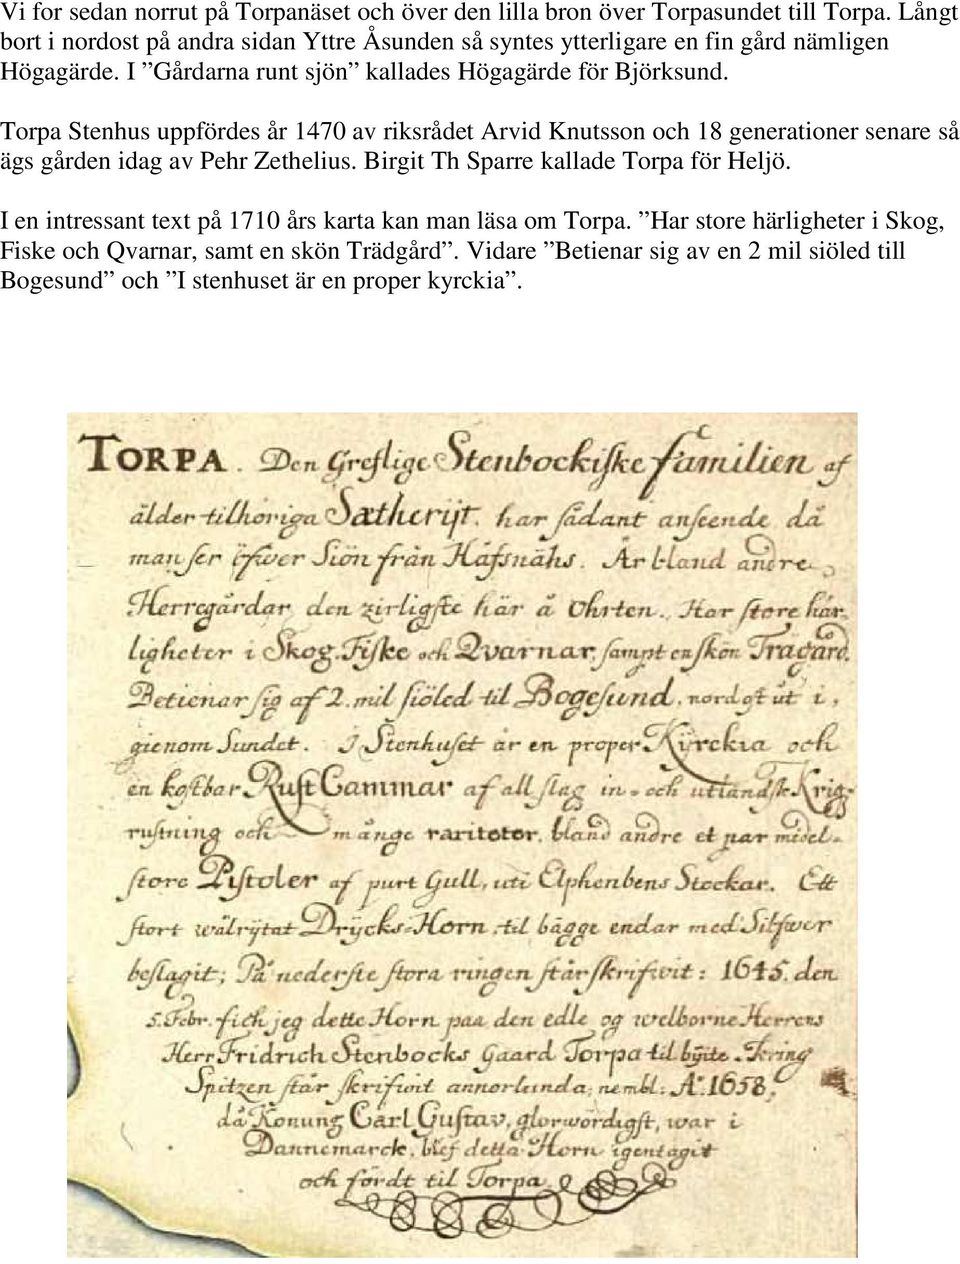 Vi for sedan norrut på Torpanäset och över den lilla bron över Torpasundet till Torpa. Långt
bort i nordost på andra sidan Yttre Åsunden så syntes ytterligare en fin gård nämligen
Högagärde. I ”Gårdarna runt sjön” kallades Högagärde för Björksund.
Torpa Stenhus uppfördes år 1470 av riksrådet Arvid Knutsson och 18 generationer senare så
ägs gården idag av Pehr Zethelius. Birgit Th Sparre kallade Torpa för Heljö.
I en intressant text på 1710 års karta kan man läsa om Torpa. ”Har store härligheter i Skog,
Fiske och Qvarnar, samt en skön Trädgård”. Vidare ”Betienar sig av en 2 mil siöled till
Bogesund” och ”I stenhuset är en proper kyrckia”.
TORPA. Den Greflige Stenbockiſke familien af
älder tilhöriga Sætherijt. har ſådant anſeende då
man ſer öfwer Siön från Håfsnähs. Är bland andre
Herregårdar den zirligſte här å Ohrten. Har ſtore här-
ligheter i Skog. Fiſke och Qvarnar, ſampt en ſkön Tragård.
Betienar ſig af 2. mil ſiöled til Bogeſund. nordoſt ut i,
gienom Sundet. I Stenhuſet är en proper Kÿrckia och
en koſtbar Ruſt Cammar af all ſlag in- och utländſk Krig-
ruſtning och många rariteter. bland andre et par midel-
ſtore Piſtoler af purt Gull, uti Elphenbens Stockar. Ett
ſtort wälrÿtat Drÿcks-Horn, til bägge endar med Silfwer
beſlagit; På nederſte ſtora ringen ſtår ſkrifwit: 1645. den
5. Febr. fich jeg dette Horn paa den edle og welborne Herrens
Herr Fridrich Stenbocks Gaard Torpa til bÿtte. Kring
Spitzen ſtår ſkrifwit annorlunda; nembl: A°. 1658,
då Konung Carl Guſtav, glorwördigſt, war i
Dannemarck, blef detta Horn igentagit
och fördt til Torpa.